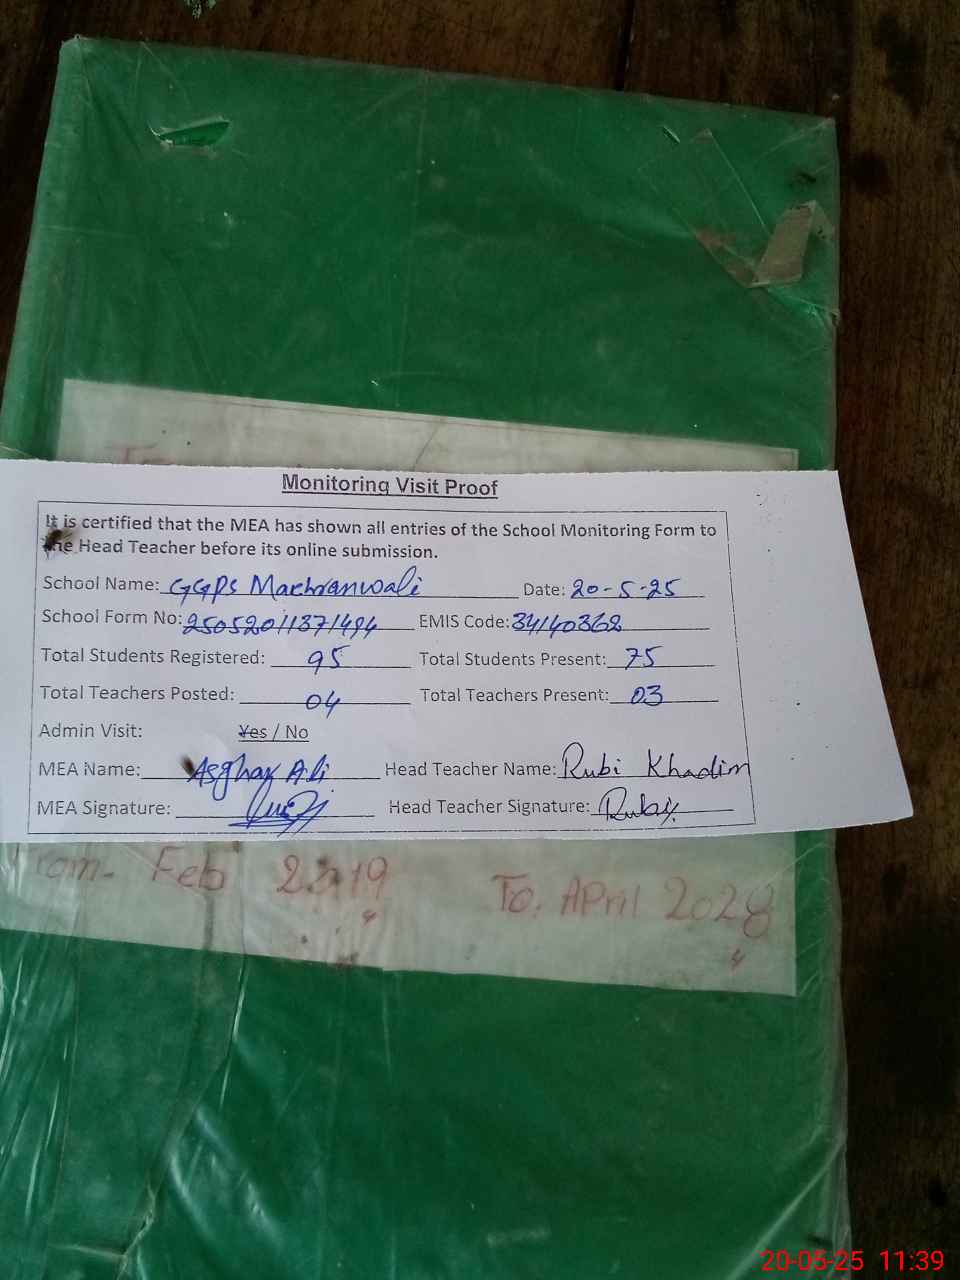 Monitoring Visit Proof
It is certified that the MEA has shown all entries of the School Monitoring Form to
the Head Teacher before its online submission.
School Name: GGPS Machranwali Date: 20-5-25
School Form No: 25052011371494 EMIS Code: 34140362
Total Students Registered: 95 Total Students Present: 75
Total Teachers Posted: 04 Total Teachers Present: 03
Admin Visit: Yes / No
MEA Name: Asghar Ali Head Teacher Name: Rubi Khadim
MEA Signature: Head Teacher Signature: Ruby
rom- Feb To. April 2028
20-05-25 11:39